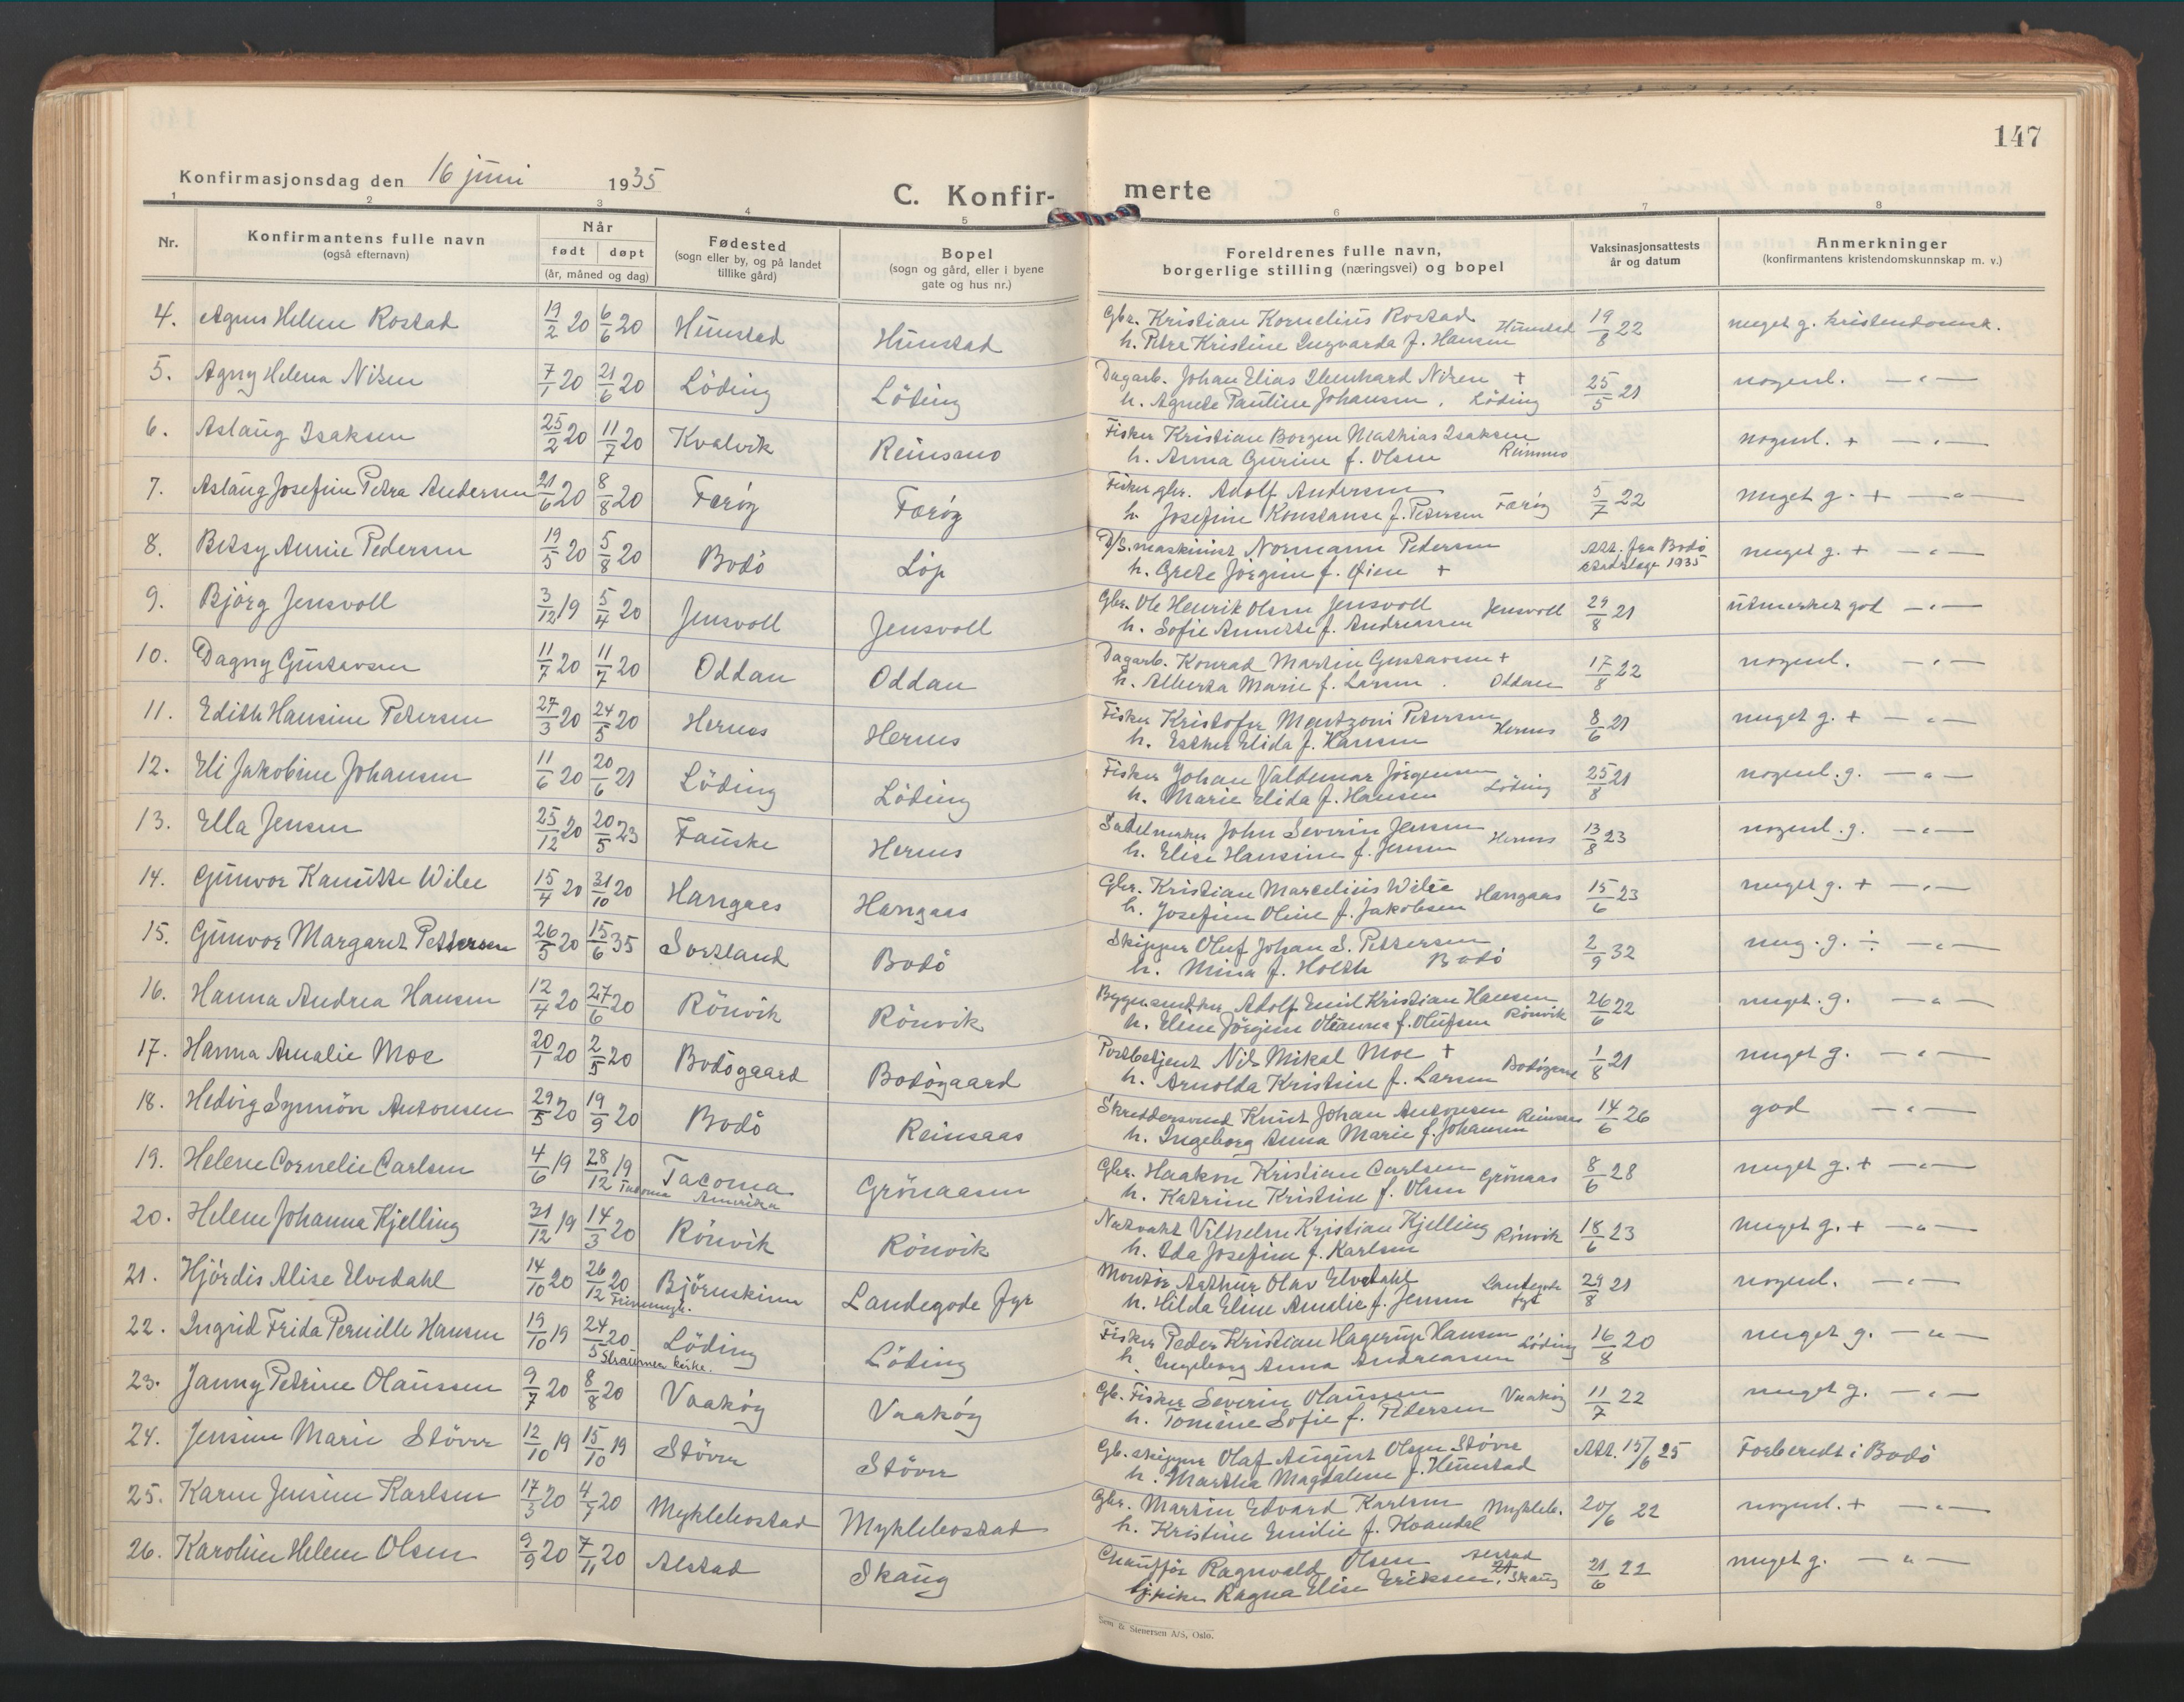 147
Konfirmasjonsdag den 16 juni 1935
C. Konfirmerte
1 2 3 4 5 6 7 8
Nr.
Konfirmantens fulle navn
(også efternavn)
Når
født døpt
(år, måned og dag)
Fødested
(sogn eller by, og på landet
tillike gård)
Bopel
(sogn og gård, eller i byene
gate og hus nr.)
Foreldrenes fulle navn,
borgerlige stilling (næringsvei) og bopel
Vaksinasjonsattests
år og datum
Anmerkninger
(konfirmantens kristendomskunnskap m. v.)
4. Agnes Helene Rostad 19/2 20 6/6 20 Hunstad Hunstad Gbr. Kristian Kornelius Rostad
h. Petra Kristine Ingvarda f. Hansen Hunstad 19/8 22 meget g. kristendomsk.
5. Agny Helena Nilsen 7/1 20 21/6 20 Löding Löding Dagarb. Johan Elias Nilsen +
h. Agnete Pauline Johansen. Löding 25/5 21 nogenl. —"—
6. Aslaug Isaksen 25/2 20 11/7 20 Kvalvik Reinsmo Fisker Kristian Borgen Mathias Isaksen
h. Anna Gurine f. Olsen Reinmo nogenl. + —"—
7. Aslaug Josefine Petra Andersen 21/6 20 8/8 20 Færöy Færöy Fisker gbr. Adolf Andersen
h. Josefine Konstanse f. Petersen Færöy 5/7 22 meget g. + —"—
8. Betsy Annie Pedersen 19/5 20 5/8 20 Bodö Löp D/S. maskinist Normann Pedersen
h. Grete Jörgine f. Øien + Att. fra Bodö
stadslege 1935 meget g. + —"—
9. Björg Jensvoll 3/12 19 5/4 20 Jensvoll Jensvoll Gbr. Ole Henrik Olsen Jensvoll
h. Sofie Annette f. Andreassen Jensvoll 29/8 21 utmerket god —"—
10. Dagny Gustavsen 11/7 20 11/7 20 Oddan Oddan Dagarb. Konrad Martin Gustavsen +
h. Alberta Marie f. Larsen. Oddan 17/8 22 nogenl. —"—
11. Edith Hansine Petersen 27/3 20 24/5 20 Hernes Hernes Fisker Kristofer Mentzoni Petersen
h. Esther Elida f. Hansen Hernes 8/6 21 meget g. + —"—
12. Eli Jakobine Johansen 11/6 20 20/6 21 Löding Löding Fisker Johan Valdemar Jörgensen
h. Marie Elida f. Hansen Löding 25/8 21 nogenl. g. —"—
13. Ella Jensen 25/12 20 20/5 23 Fauske Hernes Sadelmaker John Severin Jensen
h. Elise Hansine f. Jensen Hernes 13/8 23 nogenl. g. —"—
14. Gunvor Kanutte Wilee 15/4 20 31/10 20 Hangaas Hangaas Gbr. Kristian Marcelius Wilee
h. Josefine Oline f. Jakobsen Hangaas 15/6 23 meget g. + —"—
15. Gunvor Margaret Pettersen 26/5 20 15/6 35 Sortland Bodö Skipper Oluf Johan S. Pettersen
h. Mina f. Holth Bodö 2/9 32 meg. g. ÷ —"—
16. Hanna Andrea Hansen 12/4 20 27/6 20 Rönvik Rönvik Adolf Emil Kristian Hansen
h. Eline Jörgine Oleanna f. Olufsen Rönvik 26/6 22 meget. g. —"—
17. Hanna Amalie Moe 20/1 20 2/5 20 Bodögaard Bodögaard Postbetjent Nils Mikal Moe +
h. Arnolda Kristine f. Larsen Bodögaard 1/8 21 meget g. —"—
18. Hedvig Synnöve Antonsen 29/5 20 19/9 20 Bodö Reinsaas Skreddersvend Knut Johan Antonsen Reinsaas
h. Ingeborg Anna Marie f. Johansen 14/6 26 god —"—
19. Helene Cornelie Carlsen 4/6 19 28/12 19 Tacoma Tacoma Amerika Grönaasen Gbr. Haakon Kristian Carlsen
h. Katrine Kristine f. Olsen Grönaas 8/6 28 meget g. + —"—
20. Helene Johanna Kjelling 31/12 19 14/3 20 Rönvik Rönvik Natvakt Vilhelm Kristian Kjelling
h. Ida Josefine f. Karlsen Rönvik 18/6 23 meget g. + —"—
21. Hjördis Alise Elvedahl 14/10 20 26/12 20 Björnskinn Landegode fyr Montör Arthur Olav Elvedahl
h. Hilda Eline Amalie f. Jensen Landegode fyr 29/8 21 nogenl. —"—
22. Ingrid Frida Pernille Hansen 19/10 19 24/5 20 Straumen kirke. Löding Löding Fisker Peder Kristian Hagerup Hansen
h. Ingeborg Anna Andreassen Löding 16/8 20 meget g. —"—
23. Janny Petrine Olaussen 9/7 20 8/8 20 Vaaköy Vaaköy Gb. Fisker Severin Olaussen
h. Tomine Sofie f. Pedersen Vaaköy 11/7 22 meget g. —"—
24. Jensine Marie Stövre 12/10 19 15/10 19 Stövre Stövre Gb. skipper Olaf August Olsen Stövre
h. Martha Magdalene f. Hunstad Att. 15/6 25 Forberedt i Bodö
25. Karen Jensine Karlsen 17/3 20 4/7 20 Myklebostad Myklebostad Gbr. Martin Edvard Karlsen
h. Kristine Emilie f. Kvandal Mykleb. 20/6 22 nogenl. + —"—
26. Karoline Helene Olsen 9/9 20 7/11 20 Alstad Skaug Chaufför Ragnvald Olsen Alstad
pike Ragna Elise Eriksen, Skaug 21/6 22 meget g. —"—
Sem & Stenersen A/S, Oslo.